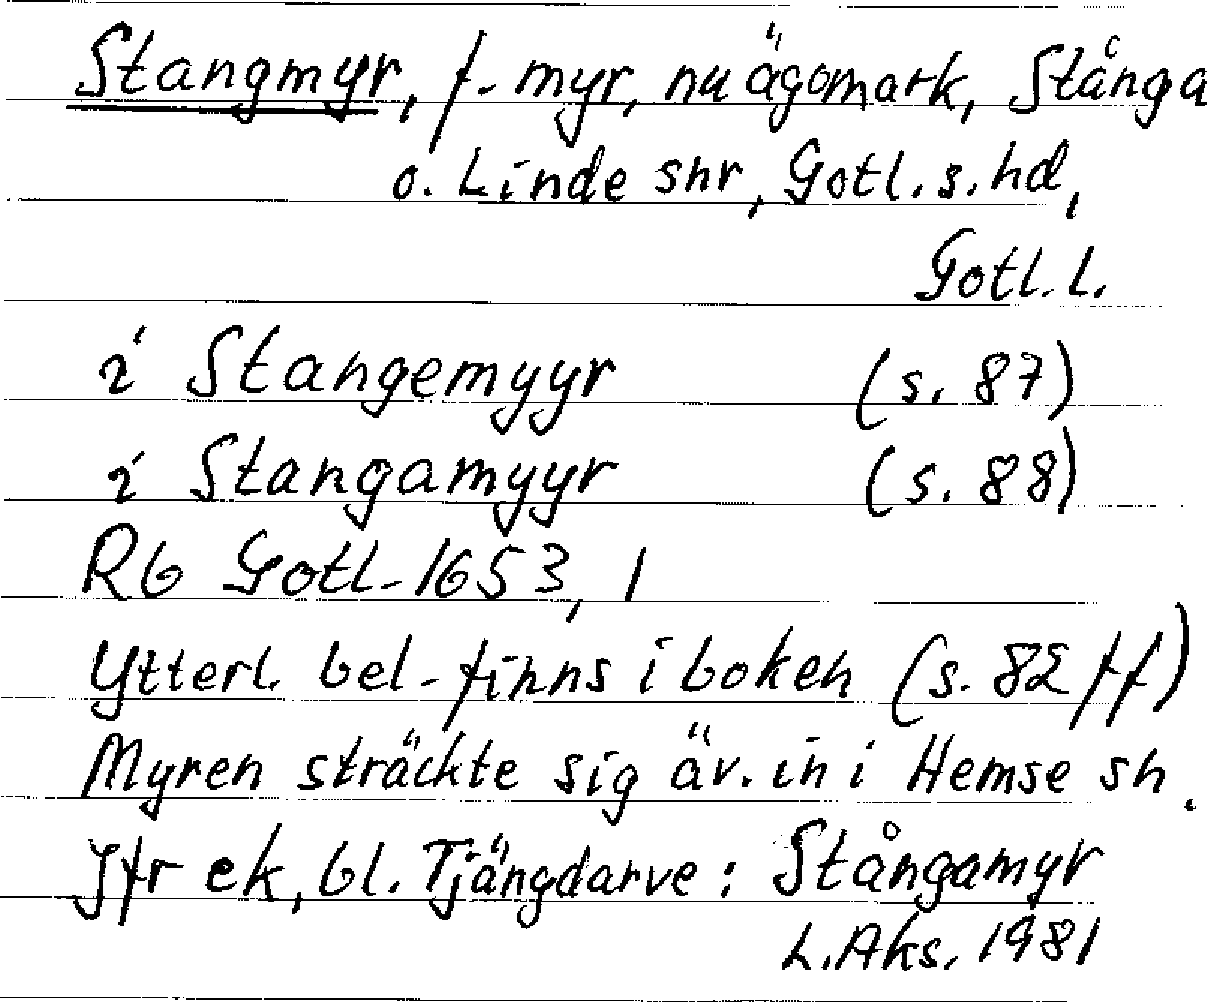 Stangmyr, f. myr, nu ägomark, Stånga
o. Linde snr, Gotl. s. hd,
Gotl. l.
i Stangemyyr (s. 87)
i Stangamyyr (s. 88)
Rb Gotl. 1653, 1
Ytterl. bel. finns i boken (s. 82 ff)
Myren sträckte sig äv. in i Hemse sn.
Jfr ek, bl. Tjängdarve: Stångamyr
L. Aks. 1981